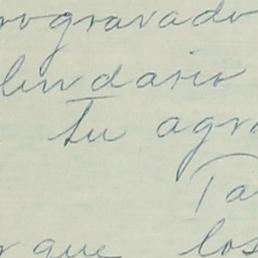 rogravado
lendario
Tu agr
Ta
rque los